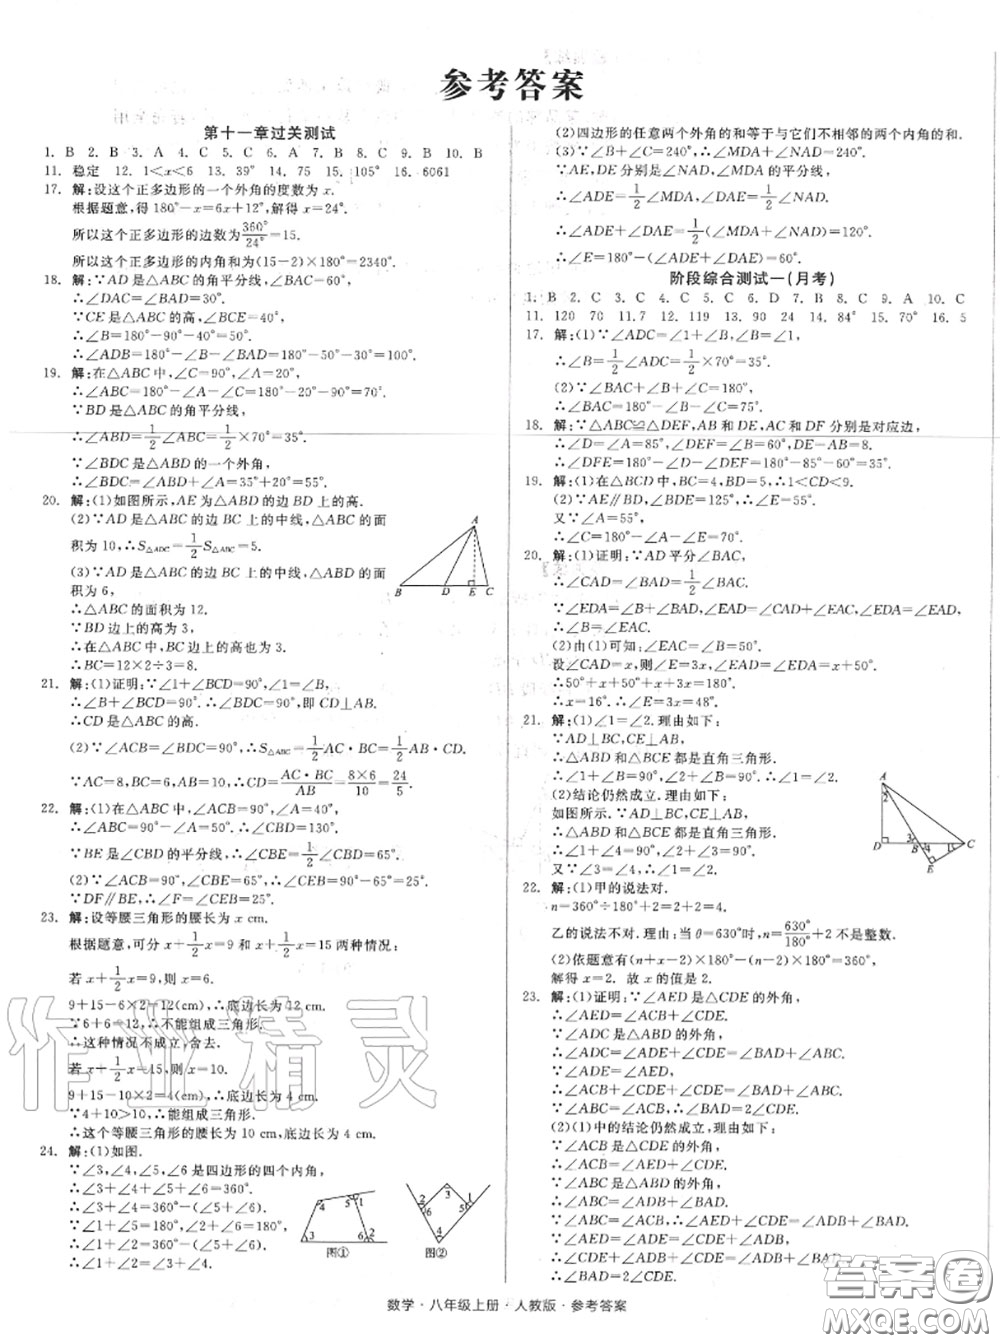 参考答案
第十一章过关测试
1. B 2. B 3. A 4. C 5. C 6. A 7. B 8. C 9. B 10. B
11. 稳定 12. 1<x<6 13. 39° 14. 75 15. 105° 16. 6061
17. 解:设这个正多边形的一个外角的度数为 x.
根据题意,得 180°-x=6x+12°,解得 x=24°.
所以这个正多边形的边数为360°/24°=15.
所以这个正多边形的内角和为(15-2)×180°=2340°.
18. 解:∵AD 是△ABC 的角平分线,∠BAC=60°,
∴∠DAC=∠BAD=30°.
∵CE 是△ABC 的高,∠BCE=40°,
∴∠B=180°-90°-40°=50°.
∴∠ADB=180°-∠B-∠BAD=180°-50°-30°=100°.
19. 解:在△ABC 中,∠C=90°,∠A=20°.
∴∠ABC=180°-∠A-∠C=180°-20°-90°=70°.
∵BD 是△ABC 的角平分线,
∴∠ABD=1/2∠ABC=1/2×70°=35°.
∵∠BDC 是△ABD 的一个外角,
∴∠BDC=∠ABD+∠A=35°+20°=55°.
20. 解:(1)如图所示,AE 为△ABD 的边 BD 上的高.
(2)∵AD 是△ABC 的边 BC 上的中线,△ABC 的面
积为 10,∴S△ADC=1/2S△ABC=5.
(3)∵AD 是△ABC 的边 BC 上的中线,△ABD 的面
积为 6,
∴△ABC 的面积为 12.
∵BD 边上的高为 3,
∴在△ABC 中,BC 边上的高也为 3.
∴BC=12×2÷3=8.
A
B D E C
21. 解:(1)证明:∵∠1+∠BCD=90°,∠1=∠B,
∴∠B+∠BCD=90°.∴∠BDC=90°,即 CD⊥AB.
∴CD 是△ABC 的高.
(2)∵∠ACB=∠BDC=90°,∴S△ABC=1/2AC·BC=1/2AB·CD.
∵AC=8,BC=6,AB=10,∴CD=AC·BC/AB=8×6/10=24/5.
22. 解:(1)在△ABC 中,∠ACB=90°,∠A=40°,
∴∠ABC=90°-∠A=50°.∴∠CBD=130°.
∵BE 是∠CBD 的平分线,∴∠CBE=1/2∠CBD=65°.
(2)∵∠ACB=90°,∠CBE=65°,∴∠CEB=90°-65°=25°.
∵DF∥BE,∴∠F=∠CEB=25°.
23. 解:设等腰三角形的腰长为 x cm.
根据题意,可分 x+1/2x=9 和 x+1/2x=15 两种情况:
若 x+1/2x=9,则 x=6.
9+15-6×2=12(cm),∴底边长为 12 cm.
∵6+6=12,∴不能组成三角形.
∴这种情况不成立,舍去.
若 x+1/2x=15,则 x=10.
9+15-10×2=4(cm),∴底边长为 4 cm.
∵4+10>10,∴能组成三角形.
∴这个等腰三角形的腰长为 10 cm,底边长为 4 cm.
24. 解:(1)如图.
∵∠3,∠4,∠5,∠6 是四边形的四个内角,
∴∠3+∠4+∠5+∠6=360°.
∴∠3+∠4=360°-(∠5+∠6).
∵∠1+∠5=180°,∠2+∠6=180°,
∴∠1+∠2=360°-(∠5+∠6).
∴∠3+∠4=∠1+∠2.
4 5 1 3 6 2
图①
2 6 4 3 1 5
图②
(2)四边形的任意两个外角的和等于与它们不相邻的两个内角的和.
(3)∵∠B+∠C=240°,∴∠MDA+∠NAD=240°.
∵AE,DE 分别是∠NAD,∠MDA 的平分线,
∴∠ADE=1/2∠MDA,∠DAE=1/2∠NAD.
∴∠ADE+∠DAE=1/2(∠MDA+∠NAD)=120°.
∴∠E=180°-(∠ADE+∠DAE)=60°.
阶段综合测试一(月考)
1. B 2. C 3. C 4. C 5. C 6. D 7. B 8. C 9. A 10. C
11. 120 70 11.7 12. 119 13. 90 24 14. 84° 15. 70° 16. 5
17. 解:(1)∵∠ADC=∠1+∠B,∠B=∠1,
∴∠B=1/2∠ADC=1/2×70°=35°.
(2)∵∠BAC+∠B+∠C=180°,
∴∠BAC=180°-∠B-∠C=70°.
18. 解:∵△ABC≌△DEF,AB 和 DE,AC 和 DF 分别是对应边,
∴∠D=∠A=85°,∠DEF=∠B=60°,DE=AB=8.
∴∠DFE=180°-∠D-∠DEF=180°-85°-60°=35°.
19. 解:(1)∵在△BCD 中,BC=4,BD=5,∴1<CD<9.
(2)∵AE∥BD,∠BDE=125°,∴∠E=55°.
又∵∠A=55°,
∴∠C=180°-∠A-∠E=70°.
20. 解:(1)证明:∵AD 平分∠BAC,
∴∠CAD=∠BAD=1/2∠BAC.
∵∠EDA=∠B+∠BAD,∠EAD=∠CAD+∠EAC,∠EDA=∠EAD,
∴∠B=∠EAC.
(2)由(1)可知:∠EAC=∠B=50°.
设∠CAD=x,则∠E=3x,∠EDA=∠EAD=x+50°.
∴50°+x+50°+x+3x=180°.
∴x=16°.∴∠E=3x=48°.
21. 解:(1)∠1=∠2. 理由如下:
∵AD⊥BC,CE⊥AB,
∴△ABD 和△BCE 都是直角三角形.
∴∠1+∠B=90°,∠2+∠B=90°.∴∠1=∠2.
(2)结论仍然成立. 理由如下:
如图所示. ∵AD⊥BC,CE⊥AB,
∴△ABD 和△BCE 都是直角三角形.
∴∠1+∠4=90°,∠2+∠3=90°.
∵∠3=∠4,∴∠1=∠2.
A 2 3 D B 4 1 C E
22. 解:(1)甲的说法对.
n=360°÷180°+2=2+2=4.
乙的说法不对. 理由:当 θ=630°时,n=630°/180°+2 不是整数.
(2)依题意有(n+x-2)×180°-(n-2)×180°=360°,
解得 x=2. 故 x 的值是 2.
23. 解:(1)证明:∵∠AED 是△CDE 的外角,
∴∠AED=∠ACB+∠CDE.
∵∠ADC 是△ABD 的外角,
∴∠ADC=∠ADE+∠CDE=∠BAD+∠ABC.
∵∠ADE=∠AED,
∴∠ACB+∠CDE+∠CDE=∠BAD+∠ABC.
∵∠ABC=∠ACB,∴∠BAD=2∠CDE.
(2)(1)中的结论仍然成立. 理由如下:
∵∠ACB 是△CDE 的外角,
∴∠ACB=∠AED+∠CDE.
∴∠AED=∠ACB-∠CDE.
∵∠ADB=∠ABC-∠BAD.
∵∠ABC=∠ACB,∴∠AED+∠CDE=∠ADB+∠BAD.
∴∠CDE+∠AED=∠ADE-∠CDE+∠BAD.
数学·八年级上册·人教版·参考答案
作业精灵
答案卷
MXQE.COM